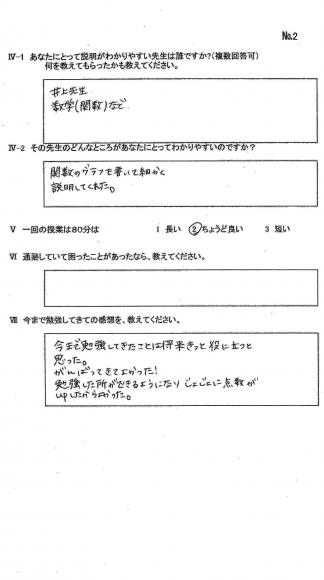 No.2
Ⅳ-1 あなたにとって説明がわかりやすい先生は誰ですか?(複数回答可)
何を教えてもらったかも教えてください。
井上先生
数学(関数)など
Ⅳ-2 その先生のどんなところがあなたにとってわかりやすいのですか?
関数のグラフを書いて細かく
説明してくれた。
Ⅴ 一回の授業は80分は 1 長い ②ちょうど良い 3 短い
Ⅵ 通塾していて困ったことがあったなら、教えてください。
Ⅶ 今まで勉強してきての感想を、教えてください。
今まで勉強してきたことは将来きっと役に立つと
思った。
がんばってきてよかった!
勉強した所ができるようになりじょじょに点数が
upしたからよかった。